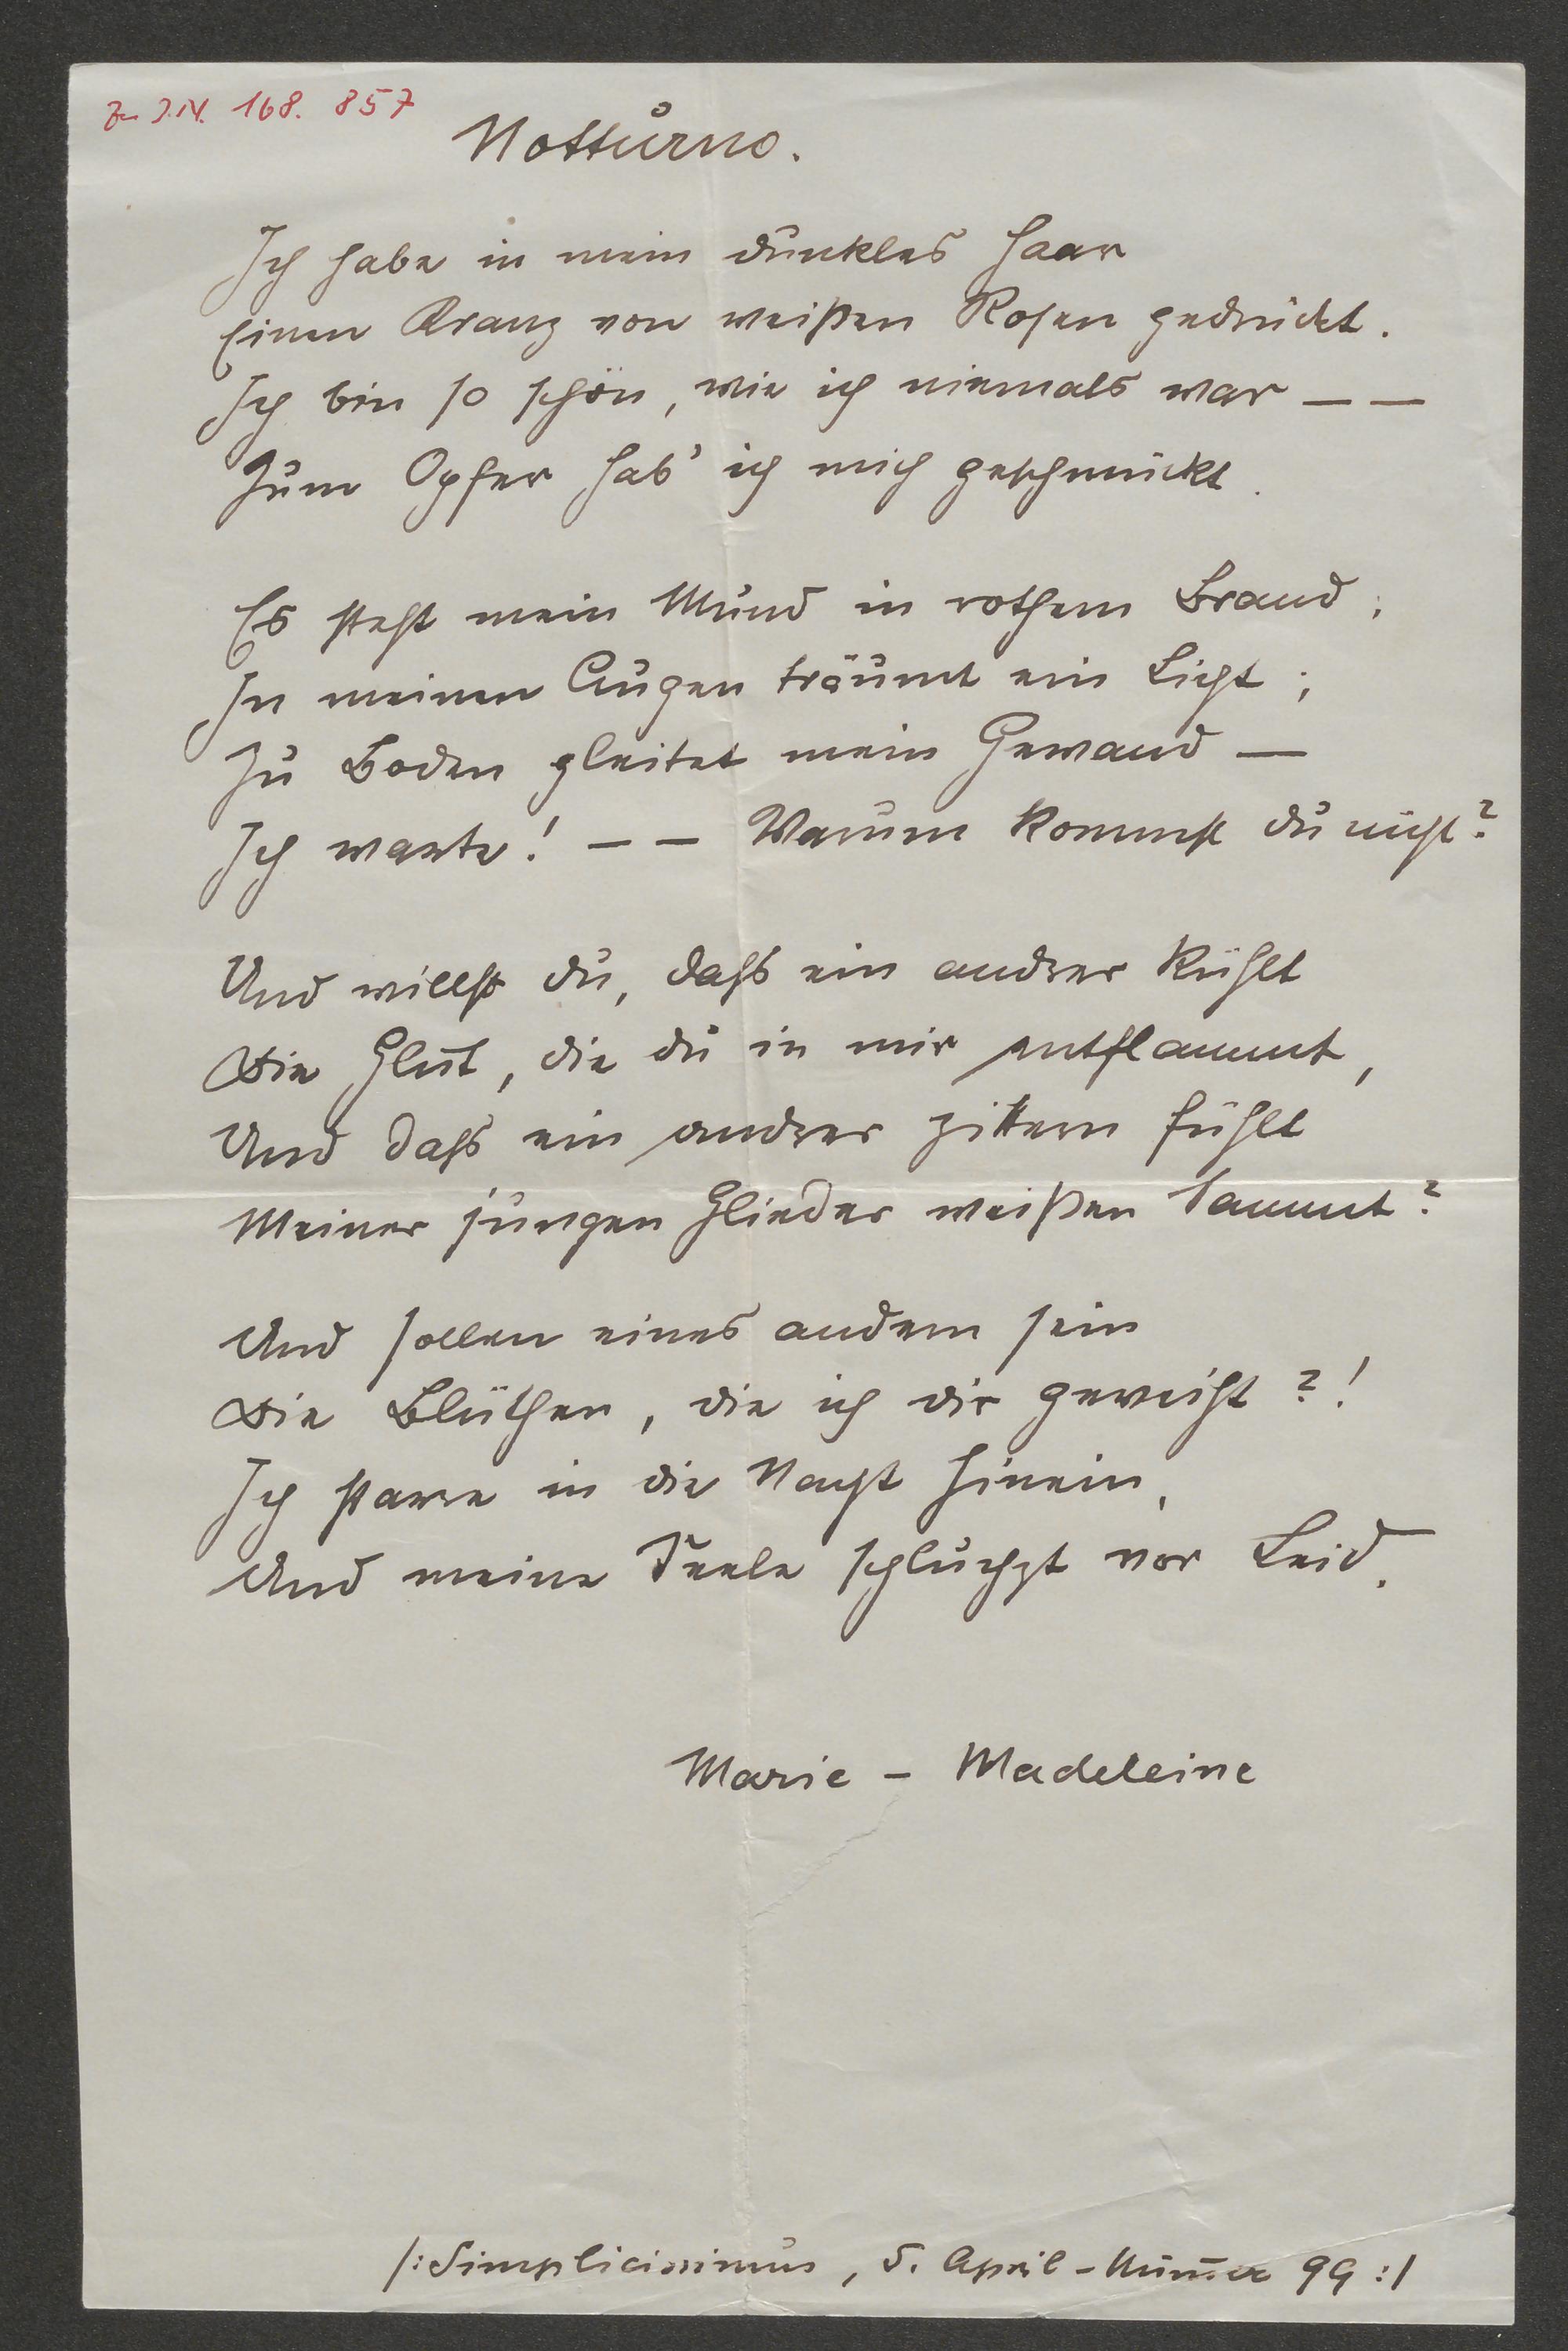 Zu I.N. 168.857
Notturno.
Ich habe in mein dunkles Haar
Einen Kranz von weißen Rosen gedrückt.
Ich bin so schön, wie ich niemals war – –
Zum Opfer hab' ich mich geschmückt.
Es steht mein Mund in rothem Brand;
In meinen Augen träumt ein Licht;
Zu Boden gleitet mein Gewand –
Ich warte! – – Warum kommst du nicht?
Und willst du, daß ein andrer kühlt
Die Glut, die du in mir entflammt,
Und daß ein andrer zittern fühlt
Meiner jungen Glieder weißen Sammt?
Und sollen eines andern sein
Die Blüthen, die ich dir geweiht?!
Ich starre in die Nacht hinein,
Und meine Seele schluchzt vor Leid.
Marie – Madeleine
/: Simplicissimus, 5. April – Nummer 99 :/